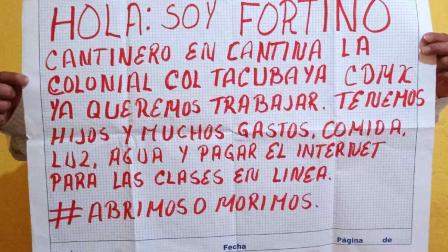 HOLA: SOY FORTINO
CANTINERO EN CANTINA LA
COLONIAL COL TACUBAYA CDMX
YA QUEREMOS TRABAJAR. TENEMOS
HIJOS Y MUCHOS GASTOS, COMIDA,
LUZ, AGUA Y PAGAR EL INTERNET
PARA LAS CLASES EN LINEA.
#ABRIMOS O MORIMOS.
Fecha Página de